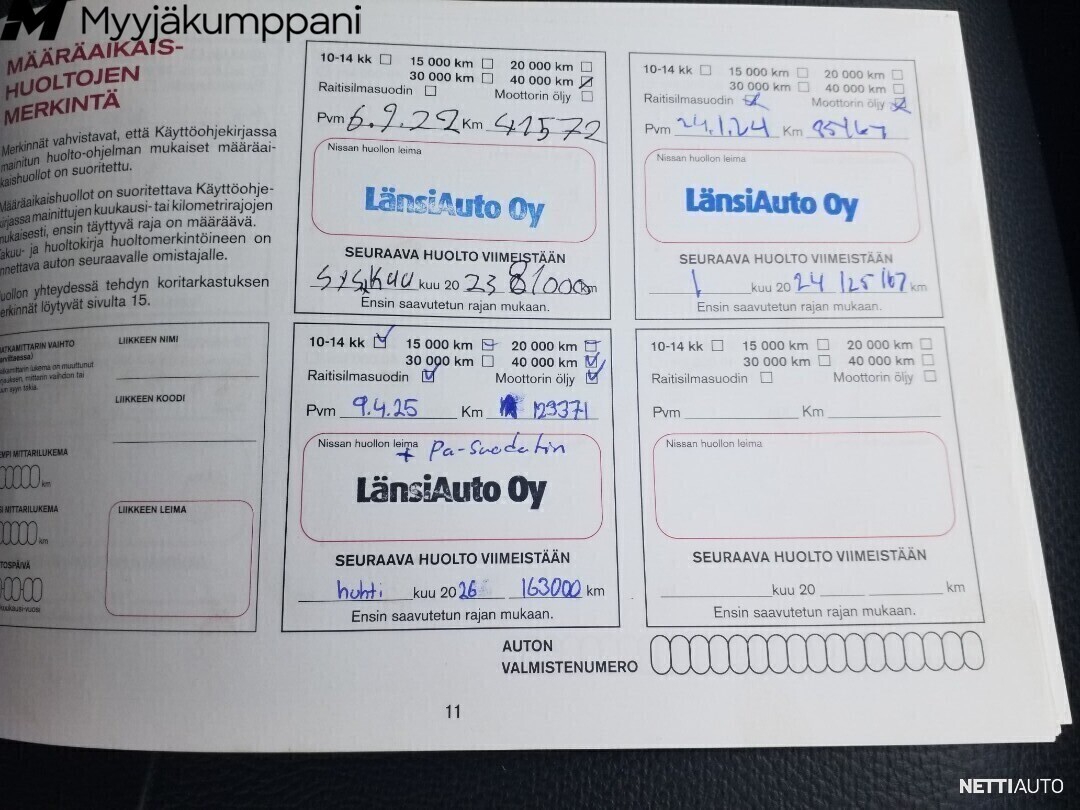 Myyjäkumppani
MÄÄRÄAIKAIS-
HUOLTOJEN
MERKINTÄ
Merkinnät vahvistavat, että Käyttöohjekirjassa
mainitun huolto-ohjelman mukaiset määräai-
kaishuollot on suoritettu.
Määräaikaishuollot on suoritettava Käyttöohje-
kirjassa mainittujen kuukausi- tai kilometrirajojen
mukaisesti, ensin täyttyvä raja on määräävä.
Takuu- ja huoltokirja huoltomerkintöineen on
annettava auton seuraavalle omistajalle.
Huollon yhteydessä tehdyn koritarkastuksen
merkinnät löytyvät sivulta 15.
MATKAMITTARIN VAIHTO
LIIKKEEN NIMI
LIIKKEEN KOODI
MITTARILUKEMA
km
MITTARILUKEMA
km
LIIKKEEN LEIMA
10-14 kk 15 000 km 20 000 km
30 000 km 40 000 km
Raitisilmasuodin Moottorin öljy
Pvm 6.9.22 Km 41572
Nissan huollon leima
LänsiAuto Oy
SEURAAVA HUOLTO VIIMEISTÄÄN
Syskuu kuu 20 23 81000 km
Ensin saavutetun rajan mukaan.
10-14 kk 15 000 km 20 000 km
30 000 km 40 000 km
Raitisilmasuodin Moottorin öljy
Pvm 24.1.24 Km 85167
Nissan huollon leima
LänsiAuto Oy
SEURAAVA HUOLTO VIIMEISTÄÄN
1 kuu 20 24 125167 km
Ensin saavutetun rajan mukaan.
10-14 kk 15 000 km 20 000 km
30 000 km 40 000 km
Raitisilmasuodin Moottorin öljy
Pvm 9.4.25 Km 123371
Nissan huollon leima
+ pa-suodatin
LänsiAuto Oy
SEURAAVA HUOLTO VIIMEISTÄÄN
huhti kuu 20 26 163000 km
Ensin saavutetun rajan mukaan.
10-14 kk 15 000 km 20 000 km
30 000 km 40 000 km
Raitisilmasuodin Moottorin öljy
Pvm Km
Nissan huollon leima
SEURAAVA HUOLTO VIIMEISTÄÄN
kuu 20 km
Ensin saavutetun rajan mukaan.
AUTON
VALMISTENUMERO
11
NETTIAUTO